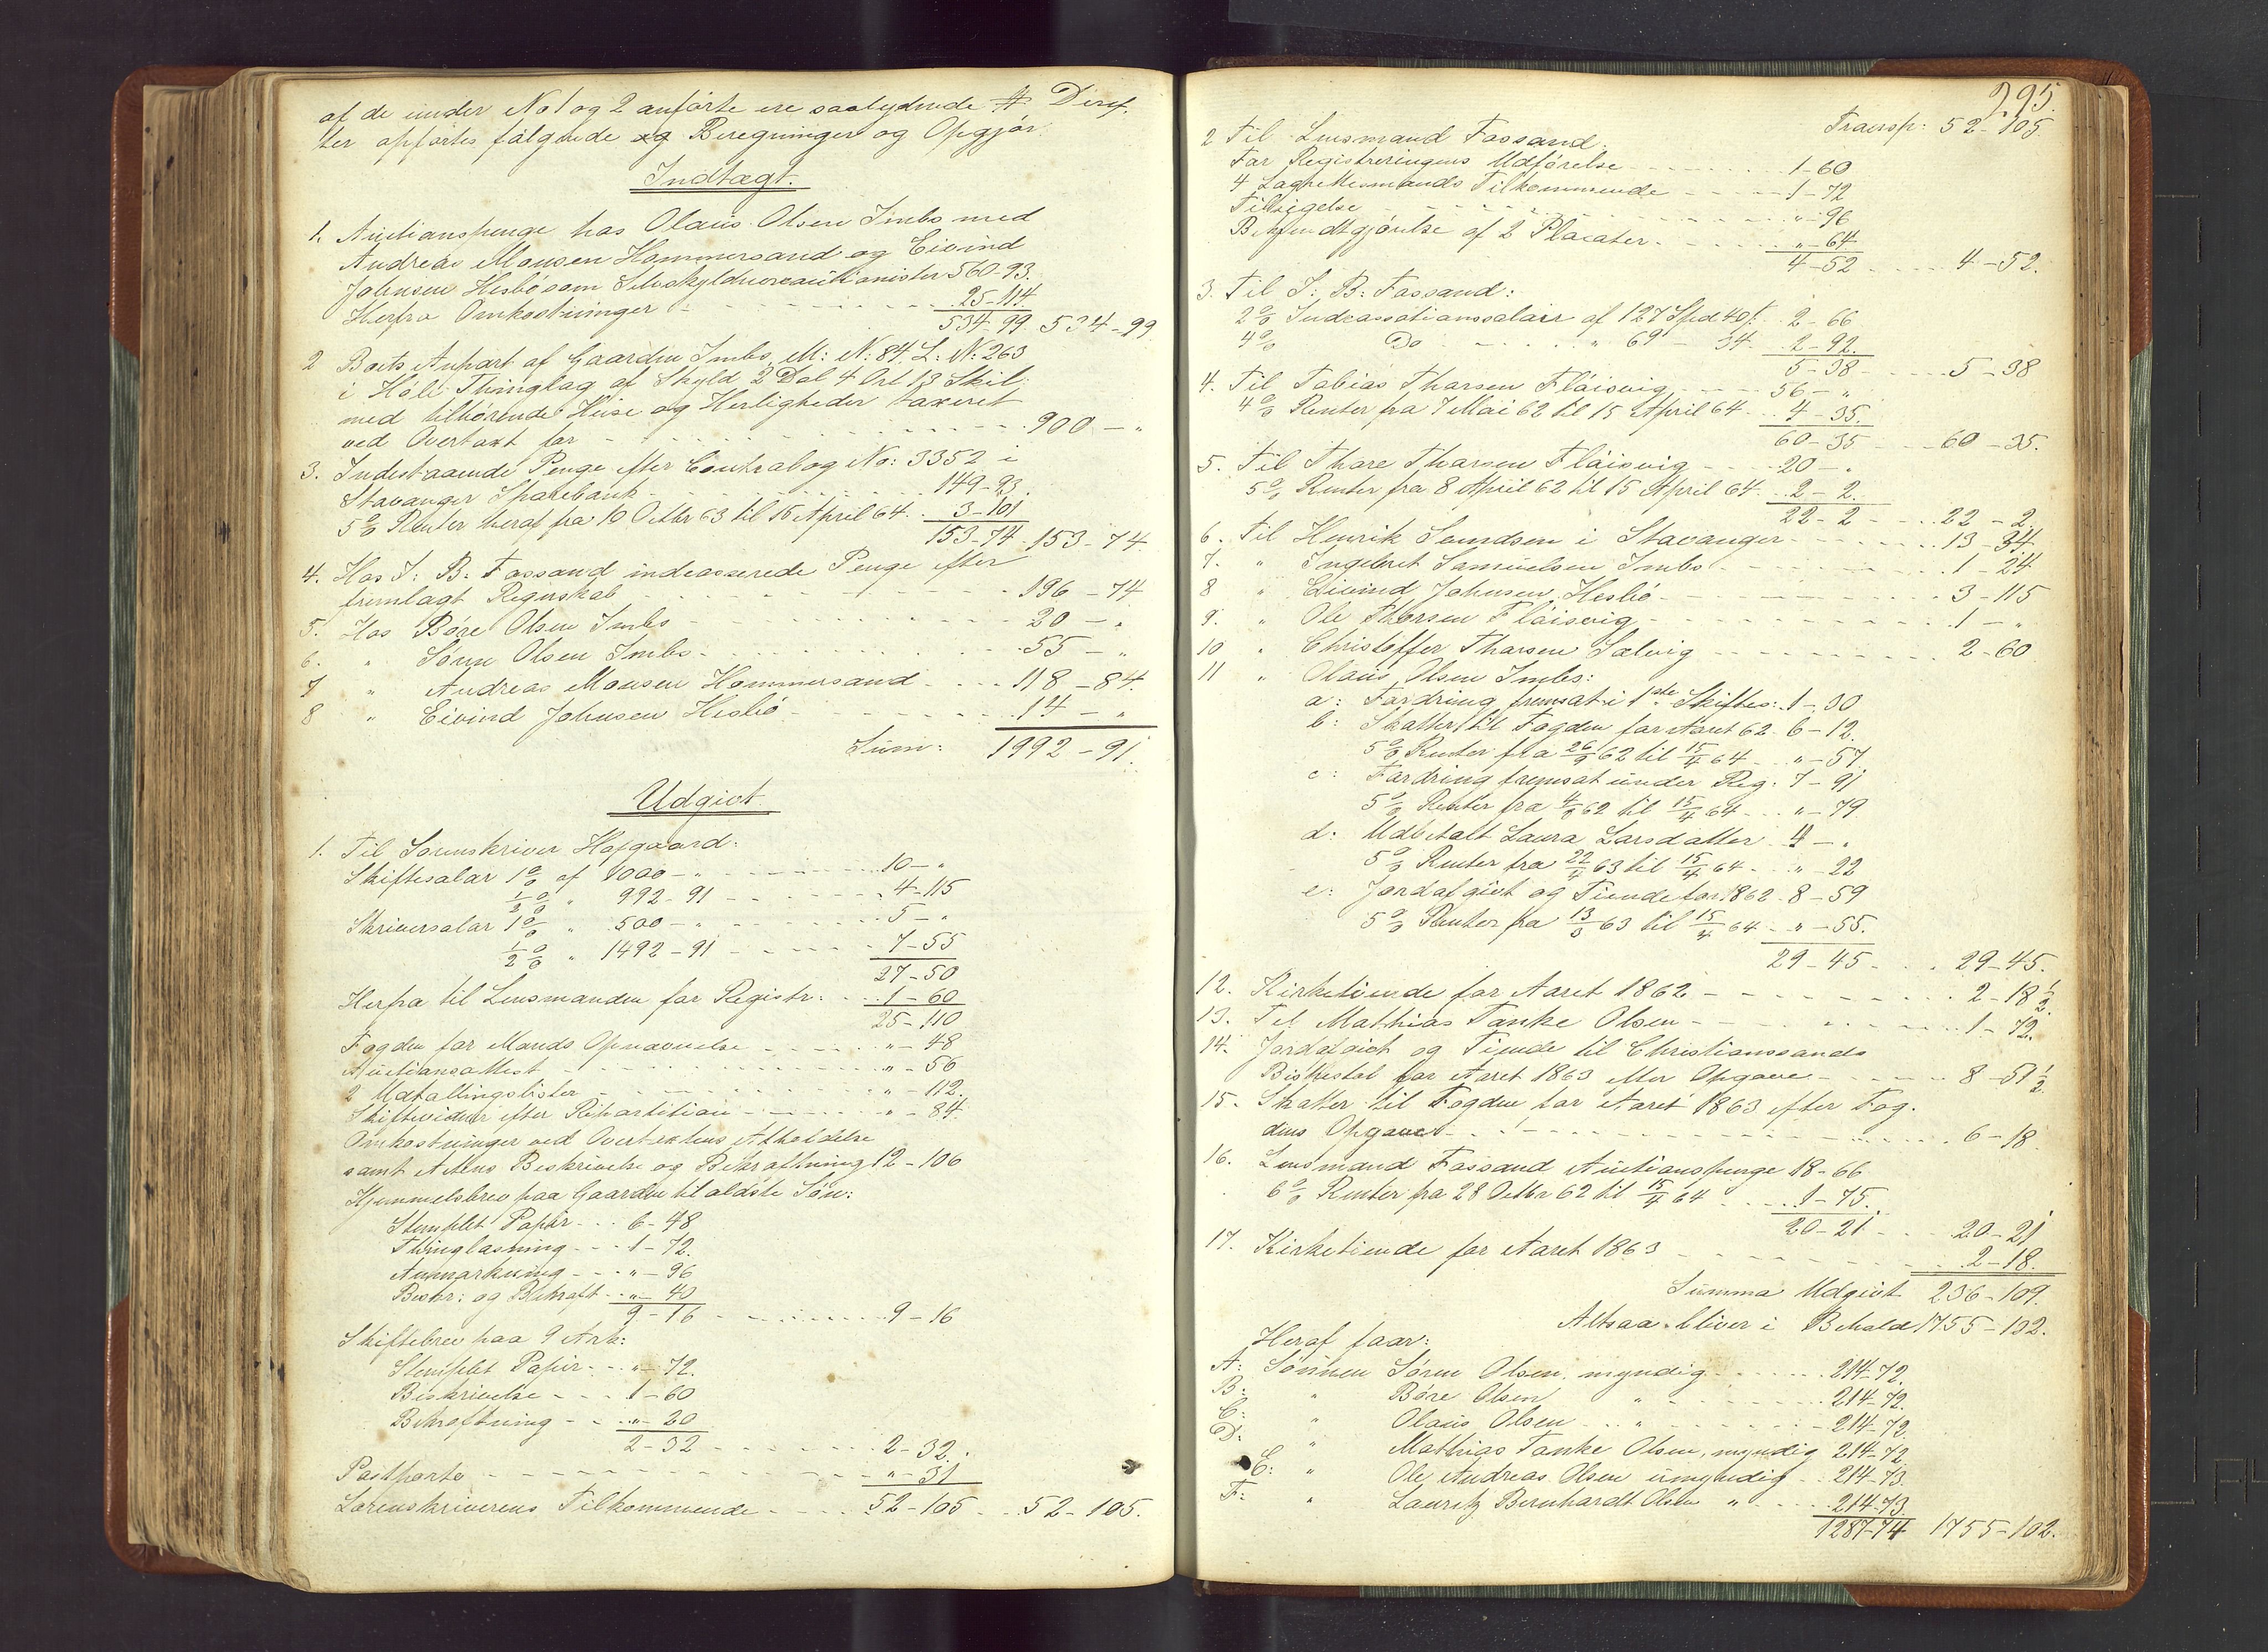 af de under No 1 og 2 anførte ere saalydende # Deref-
ter opførtes følgende og Beregninger og Opgjør.
Indtægt.
1. Auctionspenge hos Olaus Olsen Imbs med
Andreas Monsen Hommersand og Eivind
Johnsen Hesbø som Selvskyldnercautionister 560-93.
Herfra Omkostninger - 25-114.
534-99 534-99
2 Boets Anpart af Gaarden Imbs, M: N: 84. L: N: 263
i Høle Thinglag af Skyld 2 Dal 4 Ort 13 Skil:
med tilhørende Huse og Herligheder taxeret
ved Overtaxt for - 900 - "
3. Indestaaende Penge efter Contrabog No: 3352 i
Stavanger Sparebank - 149-93.
5 % Renter heraf fra 10 Octbr 63 til 15 April 64. 3-101
153-74. 153-74.
4. Hos J: B: Fossand indcasserede Penge efter
fremlagt Regnskab - 196-74
5. Hos Børe Olsen Imbs - 20 - "
6. " Søren Olsen Imbs - 55 - "
7 " Andreas Monsen Hommersand - 118-84.
8 " Eivind Johnsen Hesbø - 14 - "
Sum: 1992-91.
Udgivt.
1. Til Sorenskriver Hofgaard:
Skiftesalær 1 % af 1000 - " - 10 - "
1/2 % " 992-91 - 4-115
Skriversalær 1 % " 500 - " - 5 - "
1/2 % " 1492-91 - 7-55
27-50
Herfra til Lensmanden for Registr: 1-60
25-110
Fogden for Mænds Opnævnelse - " - 48
Auctionsattest - " - 56
2 Udtallingslister - " - 112.
Skiftevidner efter Repartition - " - 84.
Omkostninger ved Overtaxtens Afholdelse
samt Aktens Beskrivelse og Bekræftning 12-106
Hjemmelsbrev paa Gaarden til ældste Søn:
Stemplet Papir - 6-48
Thinglæsning - 1-72.
Anmærkning - " - 96
Beskr: og Bekræft - " - 40
9-16 - 9-16
Skiftebrev paa 9 Ark:
Stemplet Papir - " - 72.
Beskrivelse - 1-60
Bekræftning - " - 20
2-32 - 2-32.
Postporto - " - 31
Sorenskriverens Tilkommende - 52-105 - 52-105.
295.
Transp: 52-105
2 Til Lensmand Fossand:
For Registreringens Udførelse - 1-60
4 Lagrettesmænds Tilkommende - 1-72
Tilsigelse - " - 96
Bekjendtgjørelse af 2 Placater - " - 64
4-52 - 4-52.
3. Til J: B: Fossand:
2 % Indcassationssalair af 127 Spd 40 s. 2-66
4 % Do - " 69 - 34. 2-92.
5-38 - 5-38
4. Til Tobias Thorsen Fløisvig - 56 - "
4 % Renter fra 7 Mai 62 til 15 April 64 - 4-35.
60-35 - 60-35.
5. Til Thore Thorsen Fløisvig - 20 - "
5 % Renter fra 8 April 62 til 15 April 64 - 2-2.
22-2 - 22-2
6. Til Henrik Svendsen i Stavanger - 13-34
7. " Ingebret Samuelsen Imbs - 1-24
8 " Eivind Johnsen Hesbø - 3-115
9. " Ole Thorsen Fløisvig - 1 - "
10 " Christoffer Thorsen Selvig - 2-60
11 " Olaus Olsen Imbs:
a: Fordring fremsat i 1ste Skiftes: 1-30
b: Skatter til Fogden for Aaret 62. 6-12.
5 % Renter fra 26/9 62 til 15/4 64 - " - 57.
c: Fordring fremsat under Reg: 7-91
5 % Renter fra 4/3 62 til 15/4 64 - " - 79
d: Udbetalt Laura Larsdatter 4 - "
5 % Renter fra 22/4 63 til 15/4 64 - " - 22
e: Jordafgivt og Tiende for 1862. 8-59
5 % Renter fra 13/3 63 til 15/4 64 - " - 55.
29-45 - 29-45.
12. Kirketiende for Aaret 1862 - 2-18 1/2
13. Til Mathias Tanke Olsen - 1-72.
14. Jordafgivt og Tiende til Christianssands
Bispestol for Aaret 1863 efter Opgave - 8-51 1/2
15. Skatter til Fogden for Aaret 1863 efter Fog-
dens Opgave - 6-18
16. Lensmand Fossand Auctionspenge 18-66
6 % Renter fra 28 Octbr 62 til 15/4 64 - 1-75.
20-21 - 20-21
17. Kirketiende for Aaret 1863 - 2-18.
Summa Udgivt 236-109.
Altsaa bliver i Behold 1755-102.
Heraf faar:
A: Sønnen Søren Olsen, myndig - 214-72.
B: " Børe Olsen " - 214-72.
C: " Olaus Olsen " - 214-72.
D: " Mathias Tanke Olsen, myndig 214-72.
E: " Ole Andreas Olsen umyndig - 214-73.
F: " Lauritz Bernhardt Olsen " - 214-73.
1287-74 1755-102.